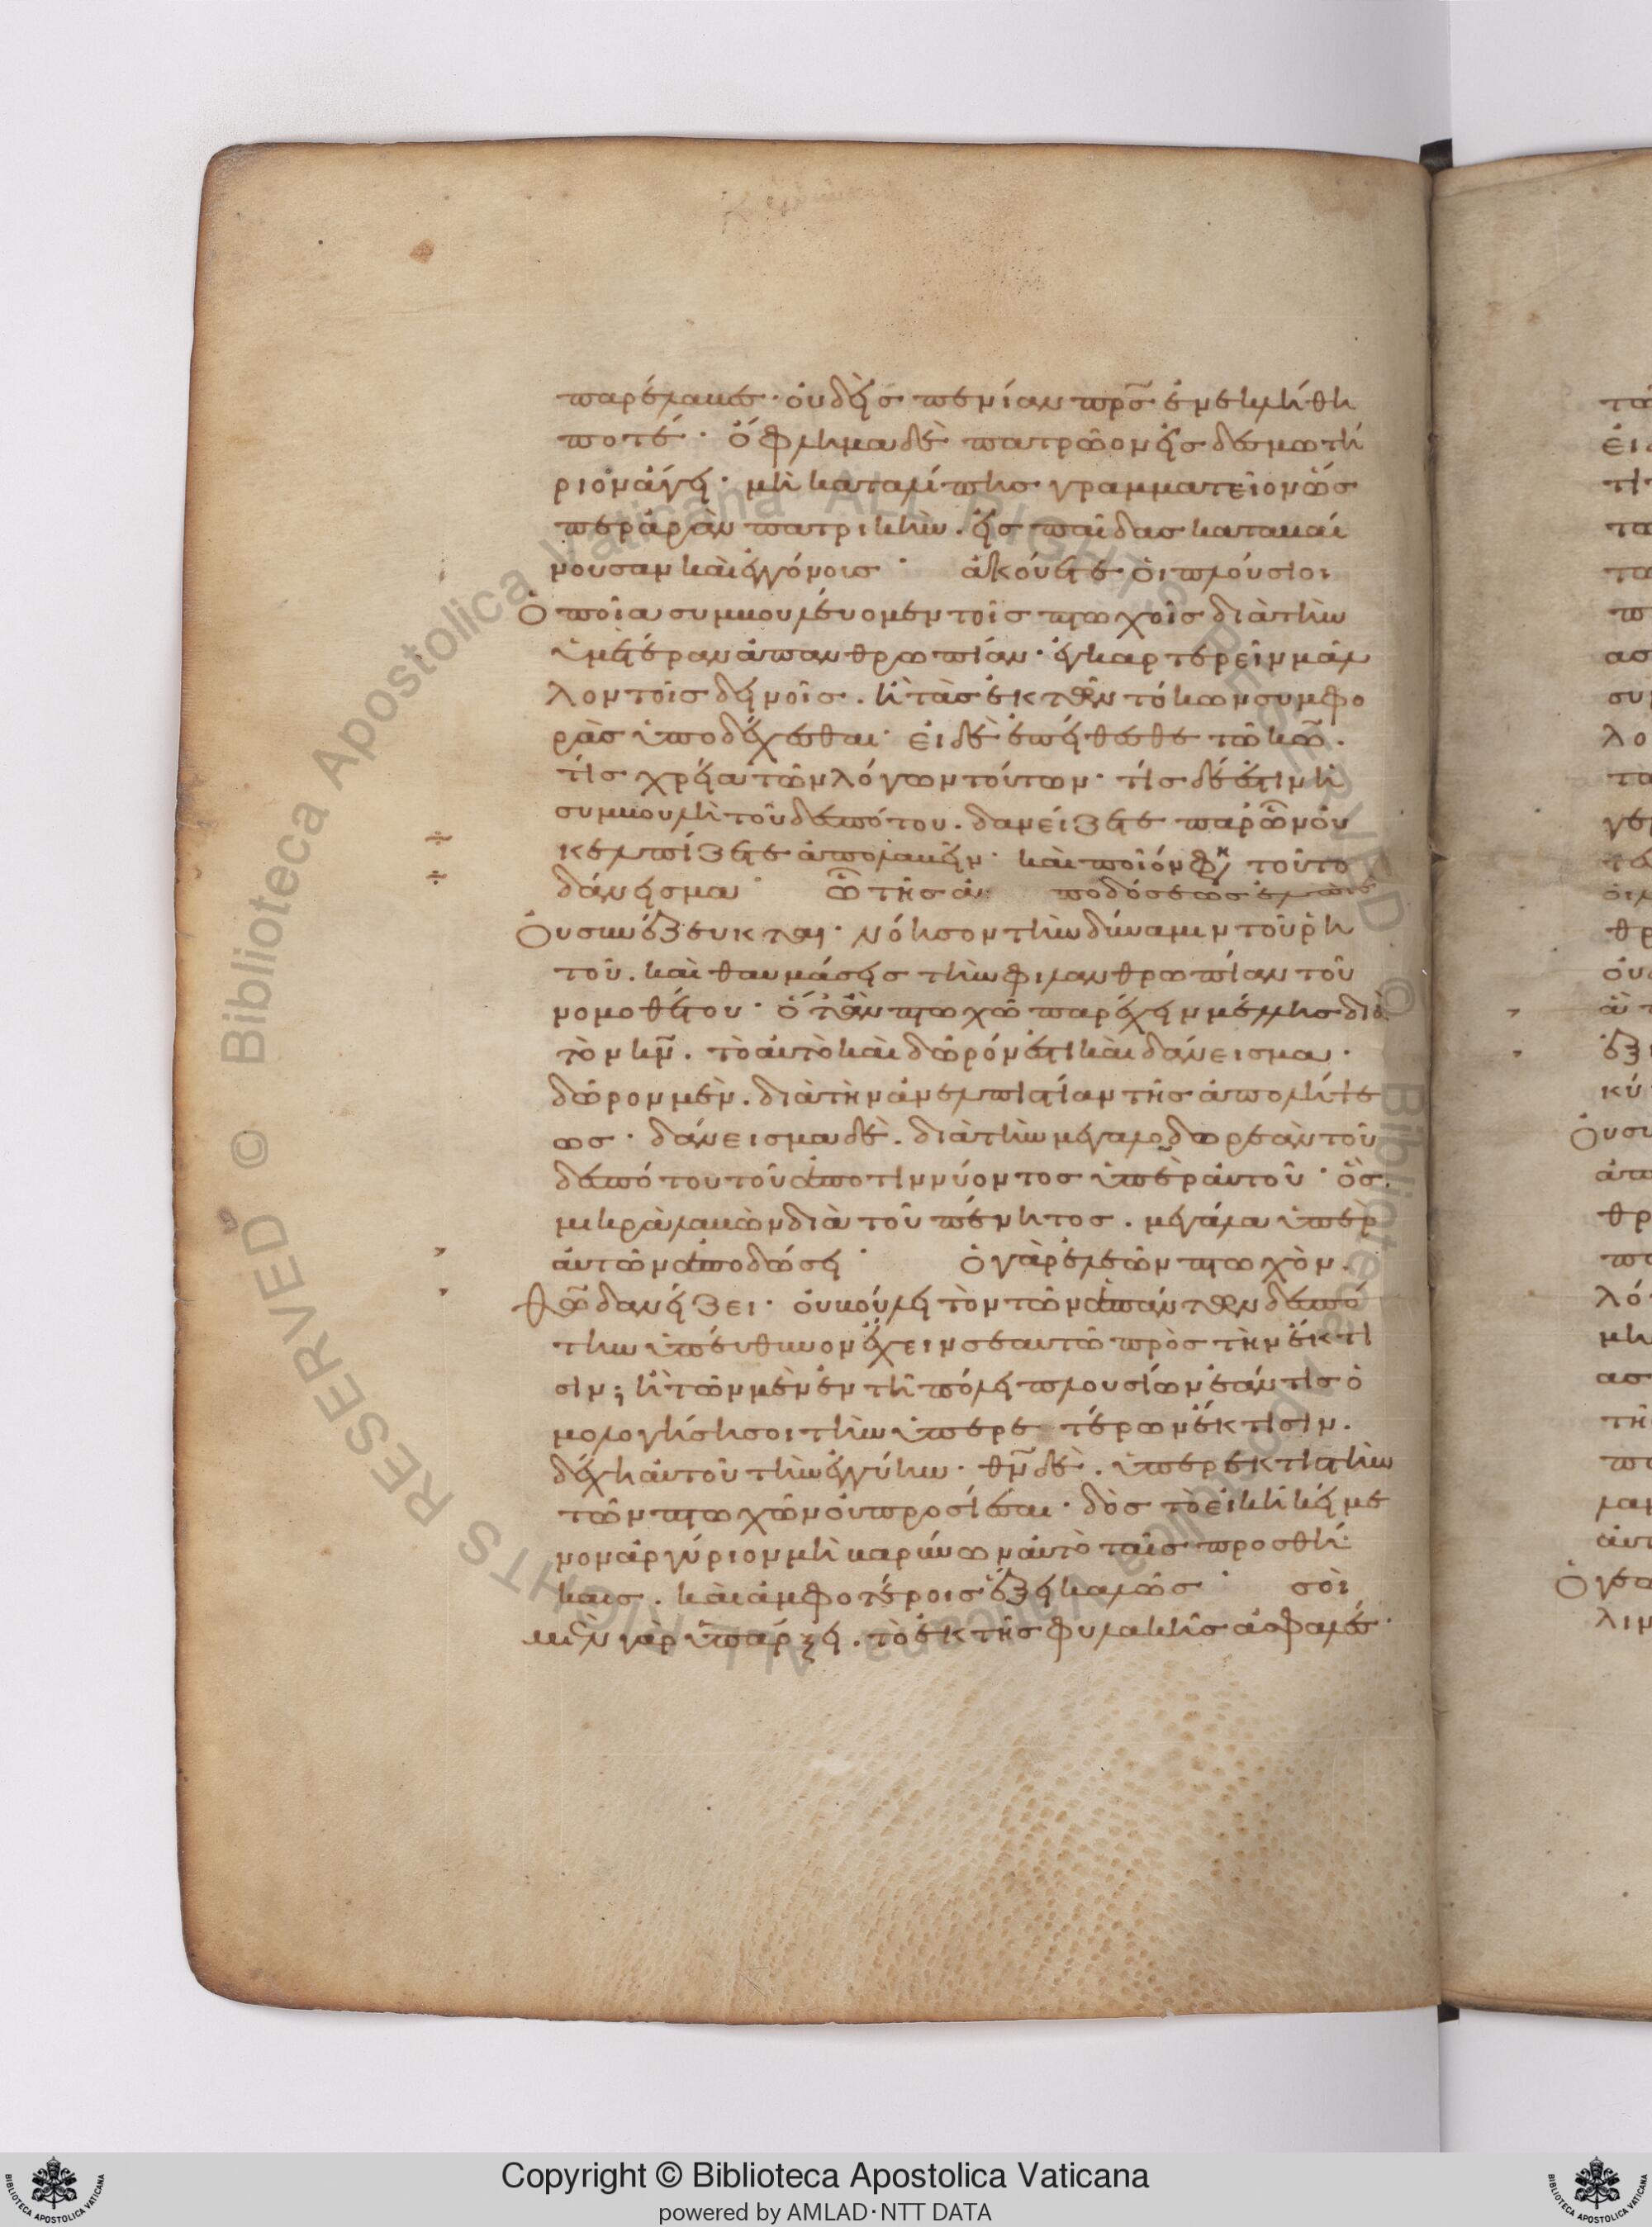 παρέλαβε· οὐδεὶς πενίαν πρς ἐνεκλήθη
ποτέ· ὄφλημα δὲ πατρῶον εἰς δεσμωτή
ριον ἄγει· μὴ καταλίπῃς γραμματεῖον ὥς
περ ἀρὰν πατρικὴν. εἰς παῖδας καταβαί
νουσαν καὶ ἐγγόνοις· ἀκούετε οἱ πλούσιοι
Ὁποῖα συμβουλεύομεν τοῖς πτωχοῖς διὰ τὴν
ὑμετέραν ἀπανθρωπίαν· ἐγκαρτερεῖν μᾶλ
λον τοῖς δεινοῖς. ἢ τὰς ἐκ τῶν τόκων συμφο
ρὰς ὑποδέχεσθαι· εἰ δὲ ἐπείθεσθε τῶ κω.
τίς χρεία τῶν λόγων τούτων· τίς δέ ἐστιν ἡ
συμβουλὴ τοῦ δεσπότου. δανείζετε παρ ὧν οὐ
κ ἐλπίζετε ἀπολαβεῖν· καὶ ποῖόν φη τοῦτο
δάνεισμα· ὧ τῆς ἀποδόσεως ἐλπὶς
Οὐ συνέζευκται· νόησον τὴν δύναμιν τοῦ ῥη
τοῦ. καὶ θαυμάσεις τὴν φιλανθρωπίαν τοῦ
νομοθέτου· ὅταν πτωχῶ παρέχειν μέλλῃς διὰ
τὸν κν. τὸ αὐτὸ καὶ δῶρόν ἐστι καὶ δάνεισμα·
δῶρον μὲν. διὰ τὴν ἀνελπιστίαν τῆς ἀπολήψε
ως· δάνεισμα δὲ. διὰ τὴν μεγαλοδωρεὰν τοῦ
δεσπότου τοῦ ἀποτιννύοντος ὑπὲρ αὐτοῦ· ὃς
μικρὰ λαβὼν διὰ τοῦ πένητος. μεγάλα ὑπὲρ
αὐτῶν ἀποδώσει· ὁ γὰρ ἐλεῶν πτωχὸν.
θω δανείζει· οὐ βούλει τὸν τῶν ἁπάντων δεσπό
την ὑπεύθυνον ἔχειν σεαυτῶ πρὸς τὴν ἔκτι
σιν; ἢ τῶν μὲν ἐν τῇ πόλει πλουσίων ἐάν τις ὁ
μολογήσῃ σοι τὴν ὑπὲρ ἑτέρων ἔκτισιν.
δέχῃ αὐτοῦ τὴν ἐγγύην· θν δὲ. ὑπερεκτιστὴν
τῶν πτωχῶν οὐ προσίεσαι· δὸς τὸ εἰκῇ κείμε
νον ἀργύριον μὴ βαρύνων αὐτὸ ταῖς προσθή
καις. καὶ ἀμφοτέροις ἕξει καλῶς· σοὶ
μὲν γὰρ ὑπάρξει. τὸ ἐκ τῆς φυλακῆς ἀσφαλές·
Copyright © Biblioteca Apostolica Vaticana
powered by AMLAD·NTT DATA